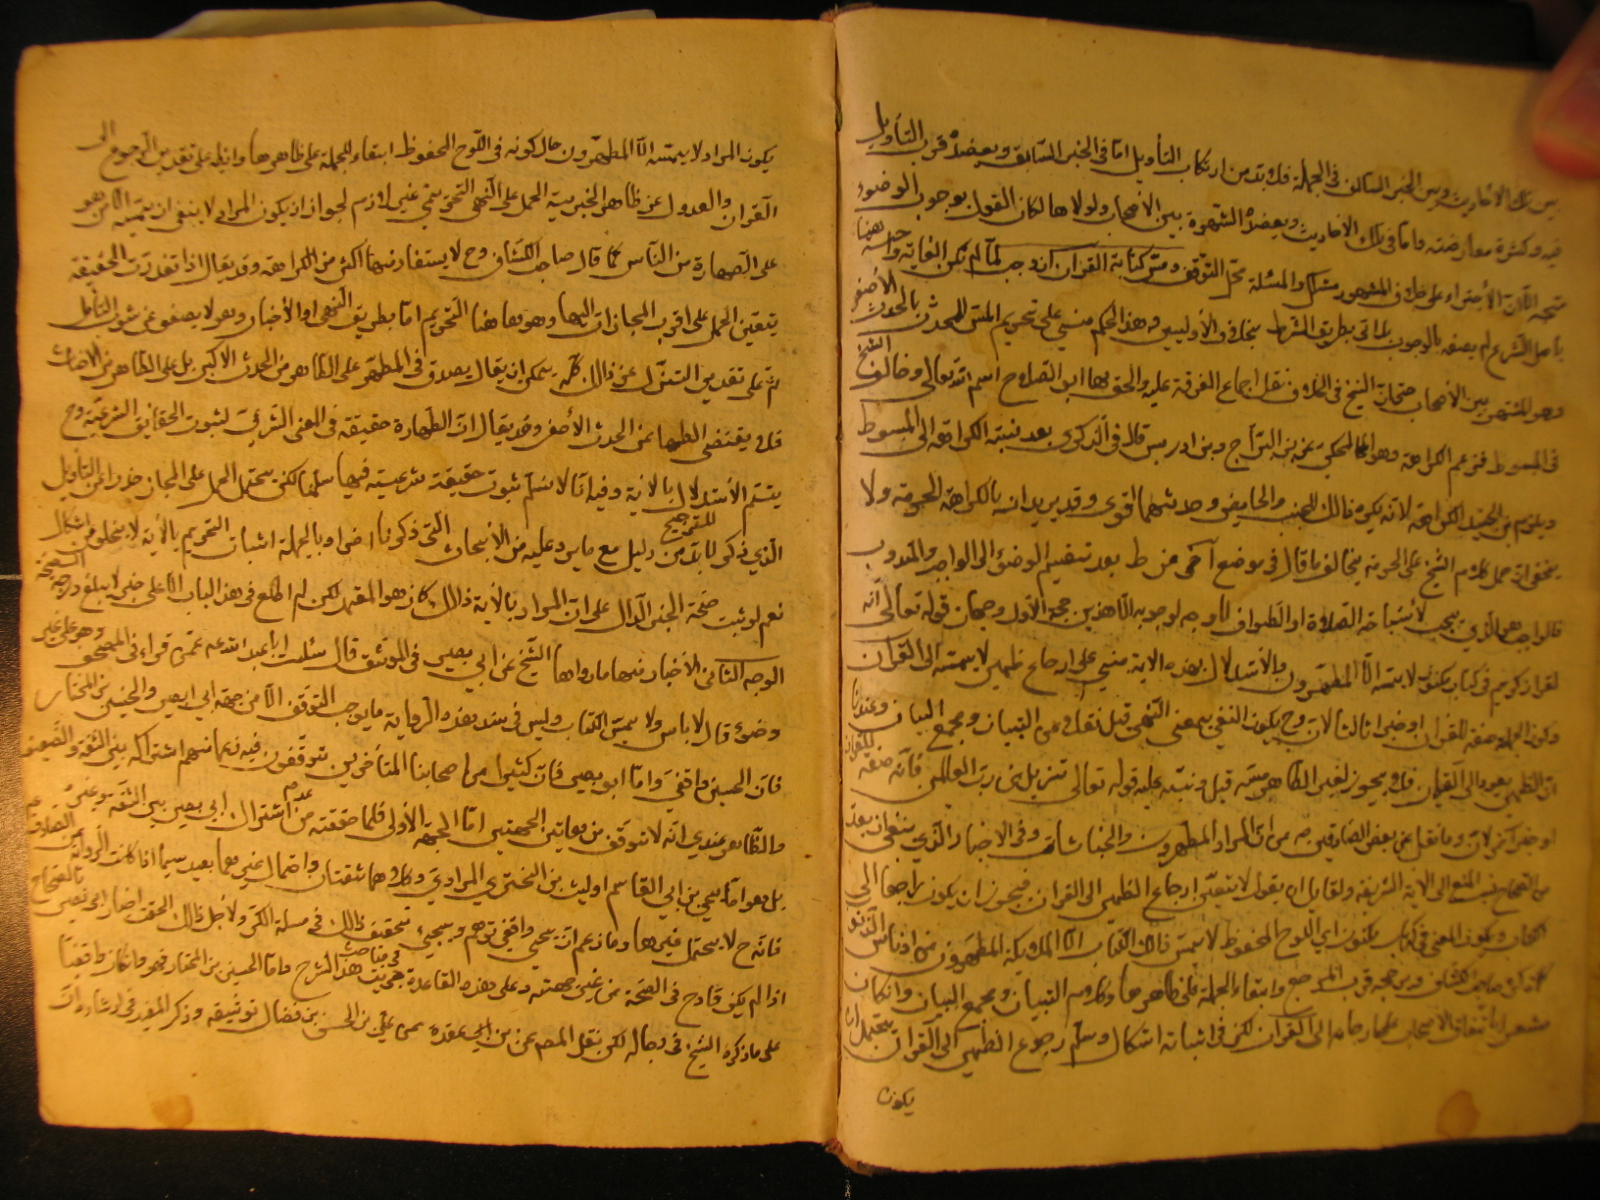 بين تلك الاحاديث وبين الخبر السالف في الجملة فلا بد من ارتكاب التأويل امّا في الخبر السّابق ويعضده قرب التأويل
فيه وكثرة معارضته وامّا في تلك الاحاديث ويعضده الشهرة بين الأصحاب ولولاها لكان القول بوجوب الوضوء
متّجه الّا انّ الأجتراء على خلاف المشهور مشكل والمسئلة محلّ التوقف ومسّ كتابة القرآن ان وجب لمّا لم تكن الغاية واجبة هنا
بأصل الشّرع لم يصفه بالوجوب بل اتى بطريق الشّرط بخلاف الأوليين وهذا الحكم مبني على تحريم المسّ للمحدث بالحدث الأصغر
وهو المشهور بين الأصحاب حتى ان الشيخ في الخلاف نقل اجماع الفرقة عليه والحق بها ابو الصلاح اسم الله تعالى وخالف الشيخ
في المبسوط فزعم الكراهة وهو المحكي عن بن البرّاج وبن ادريس قال في الذكرى بعد نسبته الكراهة الى المبسوط
ويلزم بن الجنيد الكراهة لانه يكره ذلك للجنب والحايض وحدثهما اقوى وقد يريد انه بالكراهة الحرمة ولا
يخفى انّ حمل كلام الشيخ على الحرمة مخالف ما قال في موضع آخر من ط بعد تقسيم الوضوء الى الواجب والمندوب
فالواجب هو الّذي يجب لأستباحة الصّلاة او الطّواف لا وجه لوجوبه الّا هذين حجة الأول وجهان قوله تعالى انّه
لقرآن كريم في كتاب مكنون لا يمسّه الّا المطهّرون والأستدلال بهذه الاية مبني على ارجاع ضمير لا يمسّه الى القرآن
وكون الجملة صفة للقرآن او خبرا ثالثا لانّ وح يكون النفي بمعنى النهي قيل نقلا عن التبيان ومجمع البيان وعندنا
انّ الضّمير يعود الى القرآن فلا يجوز لغير الطّاهر مسّه قيل وينبّه عليه قوله تعالى تنزيل من ربّ العالمين فانّه صفة للقرآن
او خبر آخر لانّ وما نقل عن بعض الصّادقين من انّ المراد المطهّرون والجنابات وفي الاخبار الّذي ينقل بعد
من الصحاح نسب المنع الى الآية الشّريفة ولقائل ان يقول لا يتعيّن ارجاع الضّمير الى القرآن فيجوز ان يكون راجعا الى
الكتاب ويكون المعنى في كتاب مكنون اي اللوح المحفوظ لا يمسّ ذلك الكتاب الّا الملائكة المطهّرون من ادناس الذنوب
كما ذكره صاحب الكشّاف ويرجّحه قرب المرجع وابتقاء الجملة على ظاهرها وكلام التبيان ومجمع البيان وان كان
مشعرا باتّفاق الأصحاب على ارجاعه الى القرآن لكن في اثباته اشكال وسلّم رجوع الضّمير الى القرآن يحتمل ان
يكون
يكون المراد لا يمسّه الّا المطهّرون حال كونه في اللّوح المحفوظ ابتقاء للجملة على ظاهرها وايضا على تقدير الرجوع الى
القرآن والعدول عن ظاهر الخبرية الحمل على النّهي التحريمي غير لازم لجواز ان يكون المراد لا ينبغي ان يمسّه الّا من هو
على الطّهارة من النّاس كما قال صاحب الكشّاف وح لا يستفاد منها اكثر من الكراهة وقد يقال اذا تعذّرت الحقيقة
يتعيّن الحمل على اقرب المجازات اليها وهو ها هنا التحريم امّا بطريق النّهي او الأخبار وهو لا يصفو عن شوب التأمل
ثمّ على تقدير التنزّل عن ذلك كلّه يمكن ان يقال يصدق في المطهّر على الطّاهر من الحدث الاكبر بل على الطّاهر من الاخباث
فلا يقتضي الطّهارة من الحدث الأصغر وقد يقال انّ الطّهارة حقيقة في المعنى الشّرعي لثبوت الحقايق الشرعيّة وح
يتمّ الأستدلال بالآية وفيه انّا لا نسلّم ثبوت حقيقة شرعيّة فيها سلّمنا لكن يحتمل الحمل على المجاز حذرا من التأويل
الّذي ذكر لا بدّ للترجيح من دليل مع ما يرد عليه من الأبحاث الّتي ذكرنا اخرا وبالجملة اثبات التحريم بالآية لا يخلو من اشكال
نعم لو ثبت صحّة الخبر الدّال على انّ المراد بالآية ذلك كان هو المعتمد لكن لم اطّلع في هذا الباب الّا على خبر لا يبلغ درجة الصحّة
الوجه الثاني الأخبار منها ما رواها الشّيخ عن ابي بصير في الموثق قال سئلت ابا عبد الله عم عمّن قراء في المصحف وهو على غير
وضوء قال لا باس ولا يمسّ الكتاب وليس في سند هذه الرّواية ما يوجب التوقّف الّا من جهة ابي بصير والحسين بن المختار
فانّ الحسين واقفيّ وامّا ابو بصير فانّ كثيرا من اصحابنا المتأخرين يتوقّفون فيه زعما منهم اشتراكه بين الثقة والضعيف
والظّاهر عندي انّه لا توقّف من هاتين الجهتين امّا الجهة الأولى فلما حققته من عدم اشتراك ابي بصير بين الثقة وغيره
بل هو امّا يحيى بن ابي القاسم او ليث بن البختري المرادي وكلاهما ثقتان واحتمال غيرهما بعيد سيما اذا كانت الرواية عن الصادق عم
فانّه ح لا يحتمل غيرها وما زعم انّ يحيى واقفيّ توهّم وسيجيء تحقيق ذلك في مسئلة الكرّ ولأجل ذلك الحقت اخبار ابي بصير بالصّحاح
اذا لم يكن قادح في الصّحة من غير جهته وعلى هذه القاعدة جريت في مباحث هذا الشّرح وامّا الحسين بن المختار فهو وان كان واقفيّا
على ما ذكره الشّيخ في رجاله لكن نقل المصـ عن بن عقدة عن علي بن الحسن بن فضّال توثيقه وذكر المفيد في ارشاده انّ